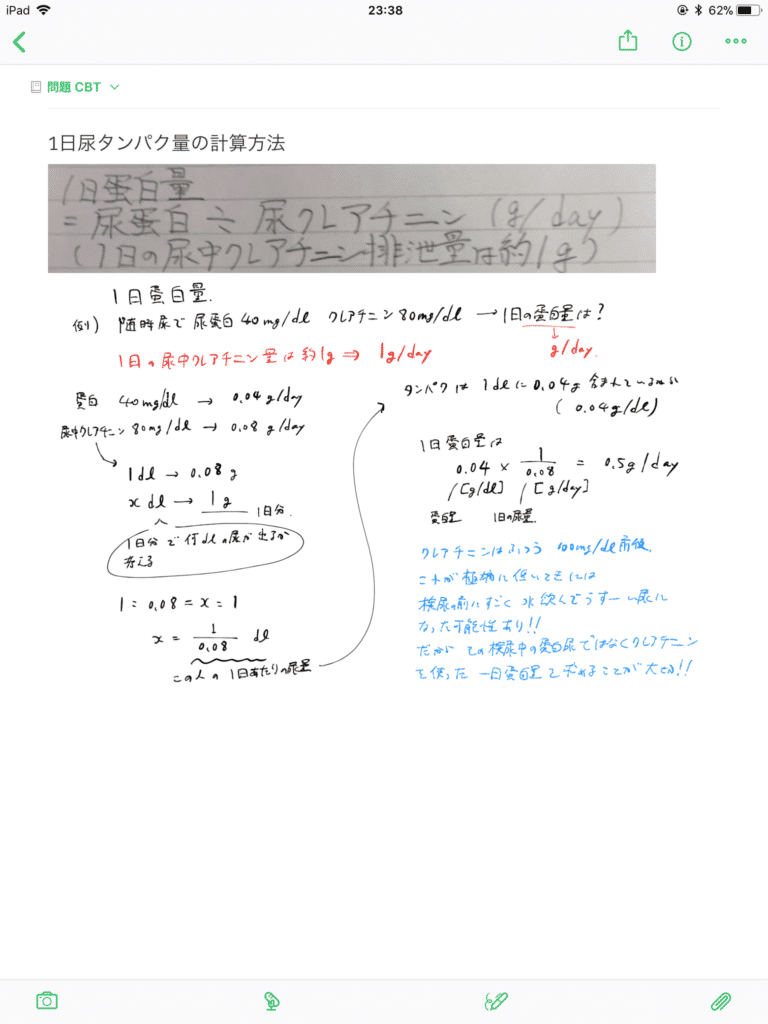 iPad
23:38
62%
問題 CBT
1日尿タンパク量の計算方法
1日蛋白量
= 尿蛋白 ÷ 尿クレアチニン (g/day)
(1日の尿中クレアチニン排泄量は約1g)
1日蛋白量.
例) 随時尿で尿蛋白40mg/dl クレアチニン80mg/dl → 1日の蛋白量は?
1日の尿中クレアチニン量は約1g ⇒ 1g/day
↓
g/day.
蛋白 40mg/dl → 0.04 g/day
尿中クレアチニン 80mg/dl → 0.08 g/day
1dl → 0.08 g
x dl → 1g 1日分.
1日分で何dlの尿が出るか
考える
1 : 0.08 = x : 1
x = 1/0.08 dl
この人の1日あたりの尿量
タンパクは 1dlに0.04g含まれているから
(0.04g/dl)
1日蛋白量は
0.04 × 1/0.08 = 0.5g/day
/[g/dl] /[g/day]
蛋白量 1日の尿量
クレアチニンはふつう 100mg/dl前後.
これが極端に低いときには
検尿の前にすごく水飲んでうすーい尿に
なった可能性あり!!
だから その検尿中の蛋白尿ではなくクレアチニン
を使った 一日蛋白量を求めることが大切!!